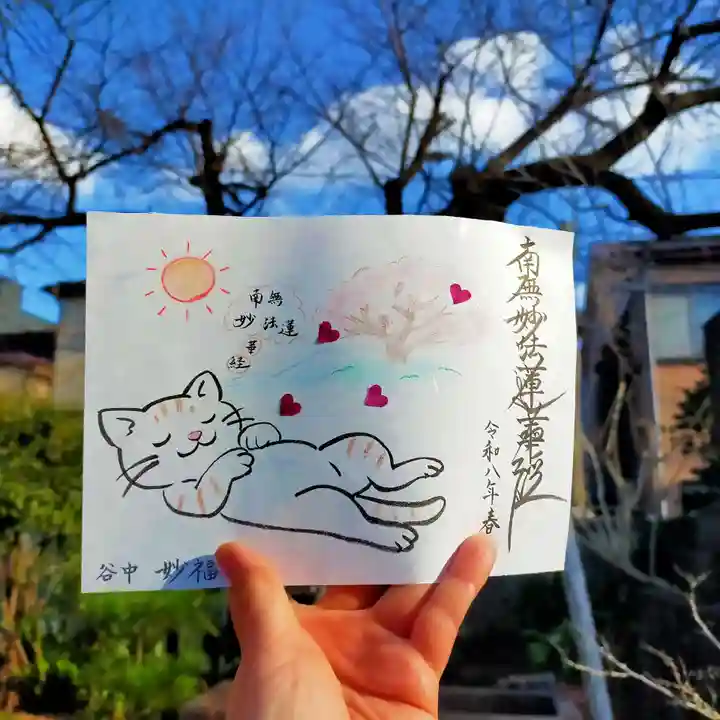 南無妙法蓮華経
令和八年春
南無
妙法蓮
華
経
谷中 妙福